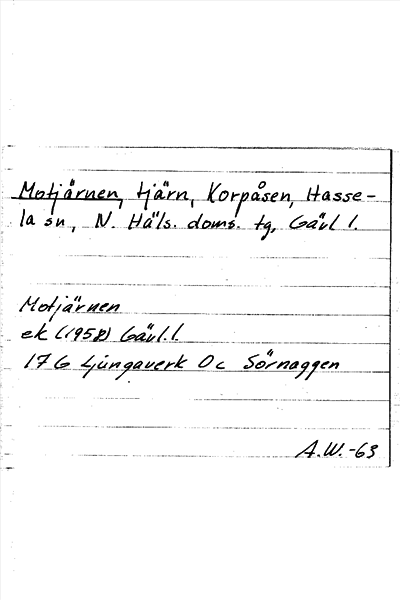 Motjärnen, tjärn, Korpåsen, Hasse-
la sn, N. Häls. doms. tg, Gävl l.
Motjärnen
ek (1958) Gävl. l.
17 G Ljungaverk 0c Sörnaggen
A.W.-63